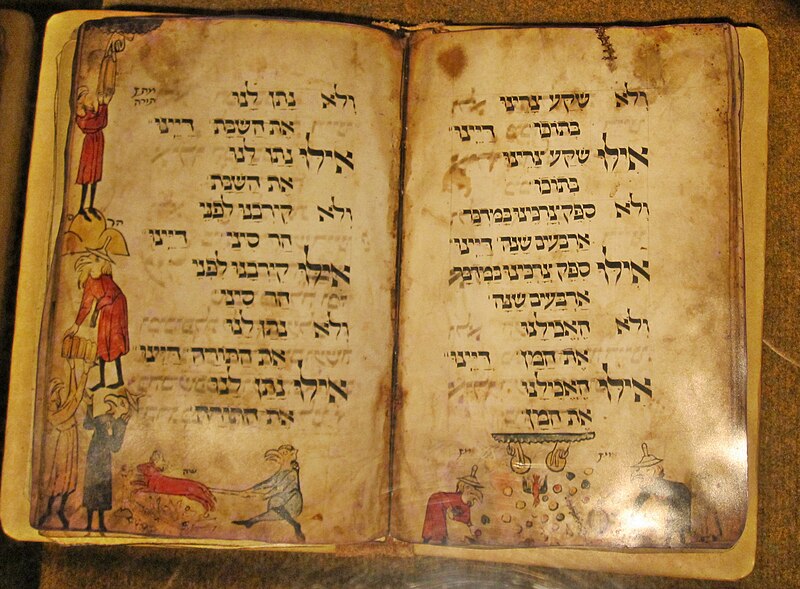 ולא שקע צרינו
בתוכו דיינו
אילו שקע צרינו
בתוכו
ולא ספק צרכינו במדבר
ארבעים שנה דיינו
אילו ספק צרכינו במדבר
ארבעים שנה
ולא האכילנו
את המן דיינו
אילו האכילנו
את המן
מתן
תורה
ולא נתן לנו
את השבת דיינו
אילו נתן לנו
את השבת
ולא קירבנו לפני
הר סיני דיינו
הר
אילו קירבנו לפני
הר סיני
ולא נתן לנו
את התורה דיינו
אילו נתן לנו
את התורה